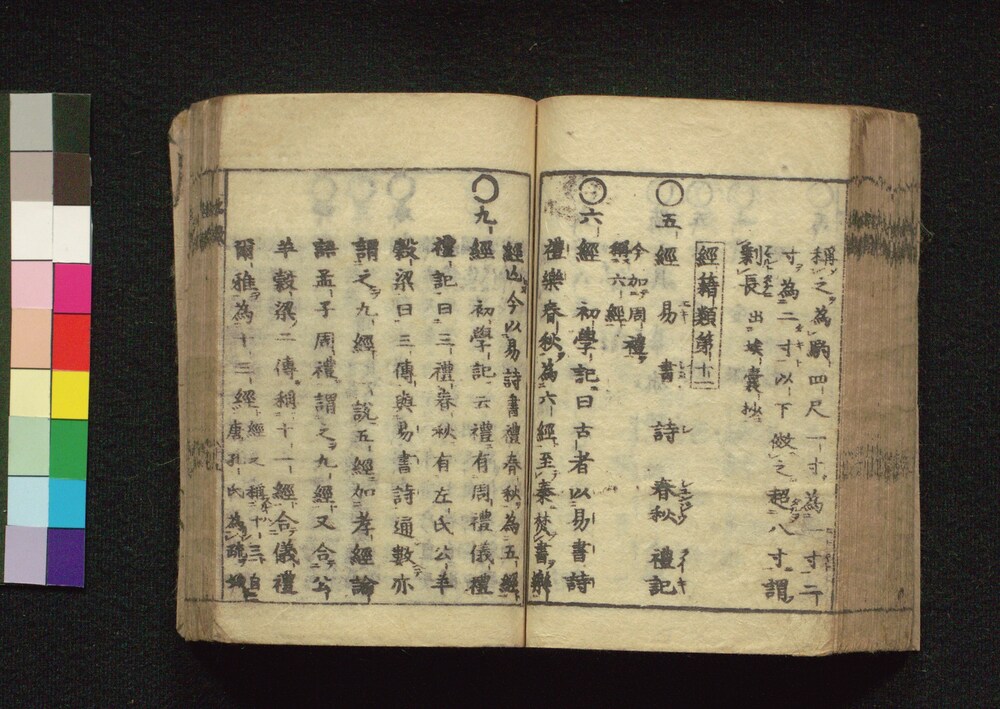 稱之為駒四尺一寸為一寸二
寸為二寸以下倣之超八寸謂
剩長出埃囊抄
經籍類第十二
〇五經 易 書 詩 春秋 禮記
今加周禮
稱六經
〇六經 初學記曰古者以易書詩
禮樂春秋為六經至秦焚書樂
經亡今以易詩書禮春秋為五經
〇九經 初學記云禮有周禮儀禮
禮記曰三禮春秋有左氏公羊
穀梁曰三傳與易書詩通數亦
謂之九經說五經如孝經論
語孟子周禮謂之九經又合公
羊穀梁二傳稱十一經合儀禮
爾雅為十三經
經之稱十三自
唐孔氏為疏始